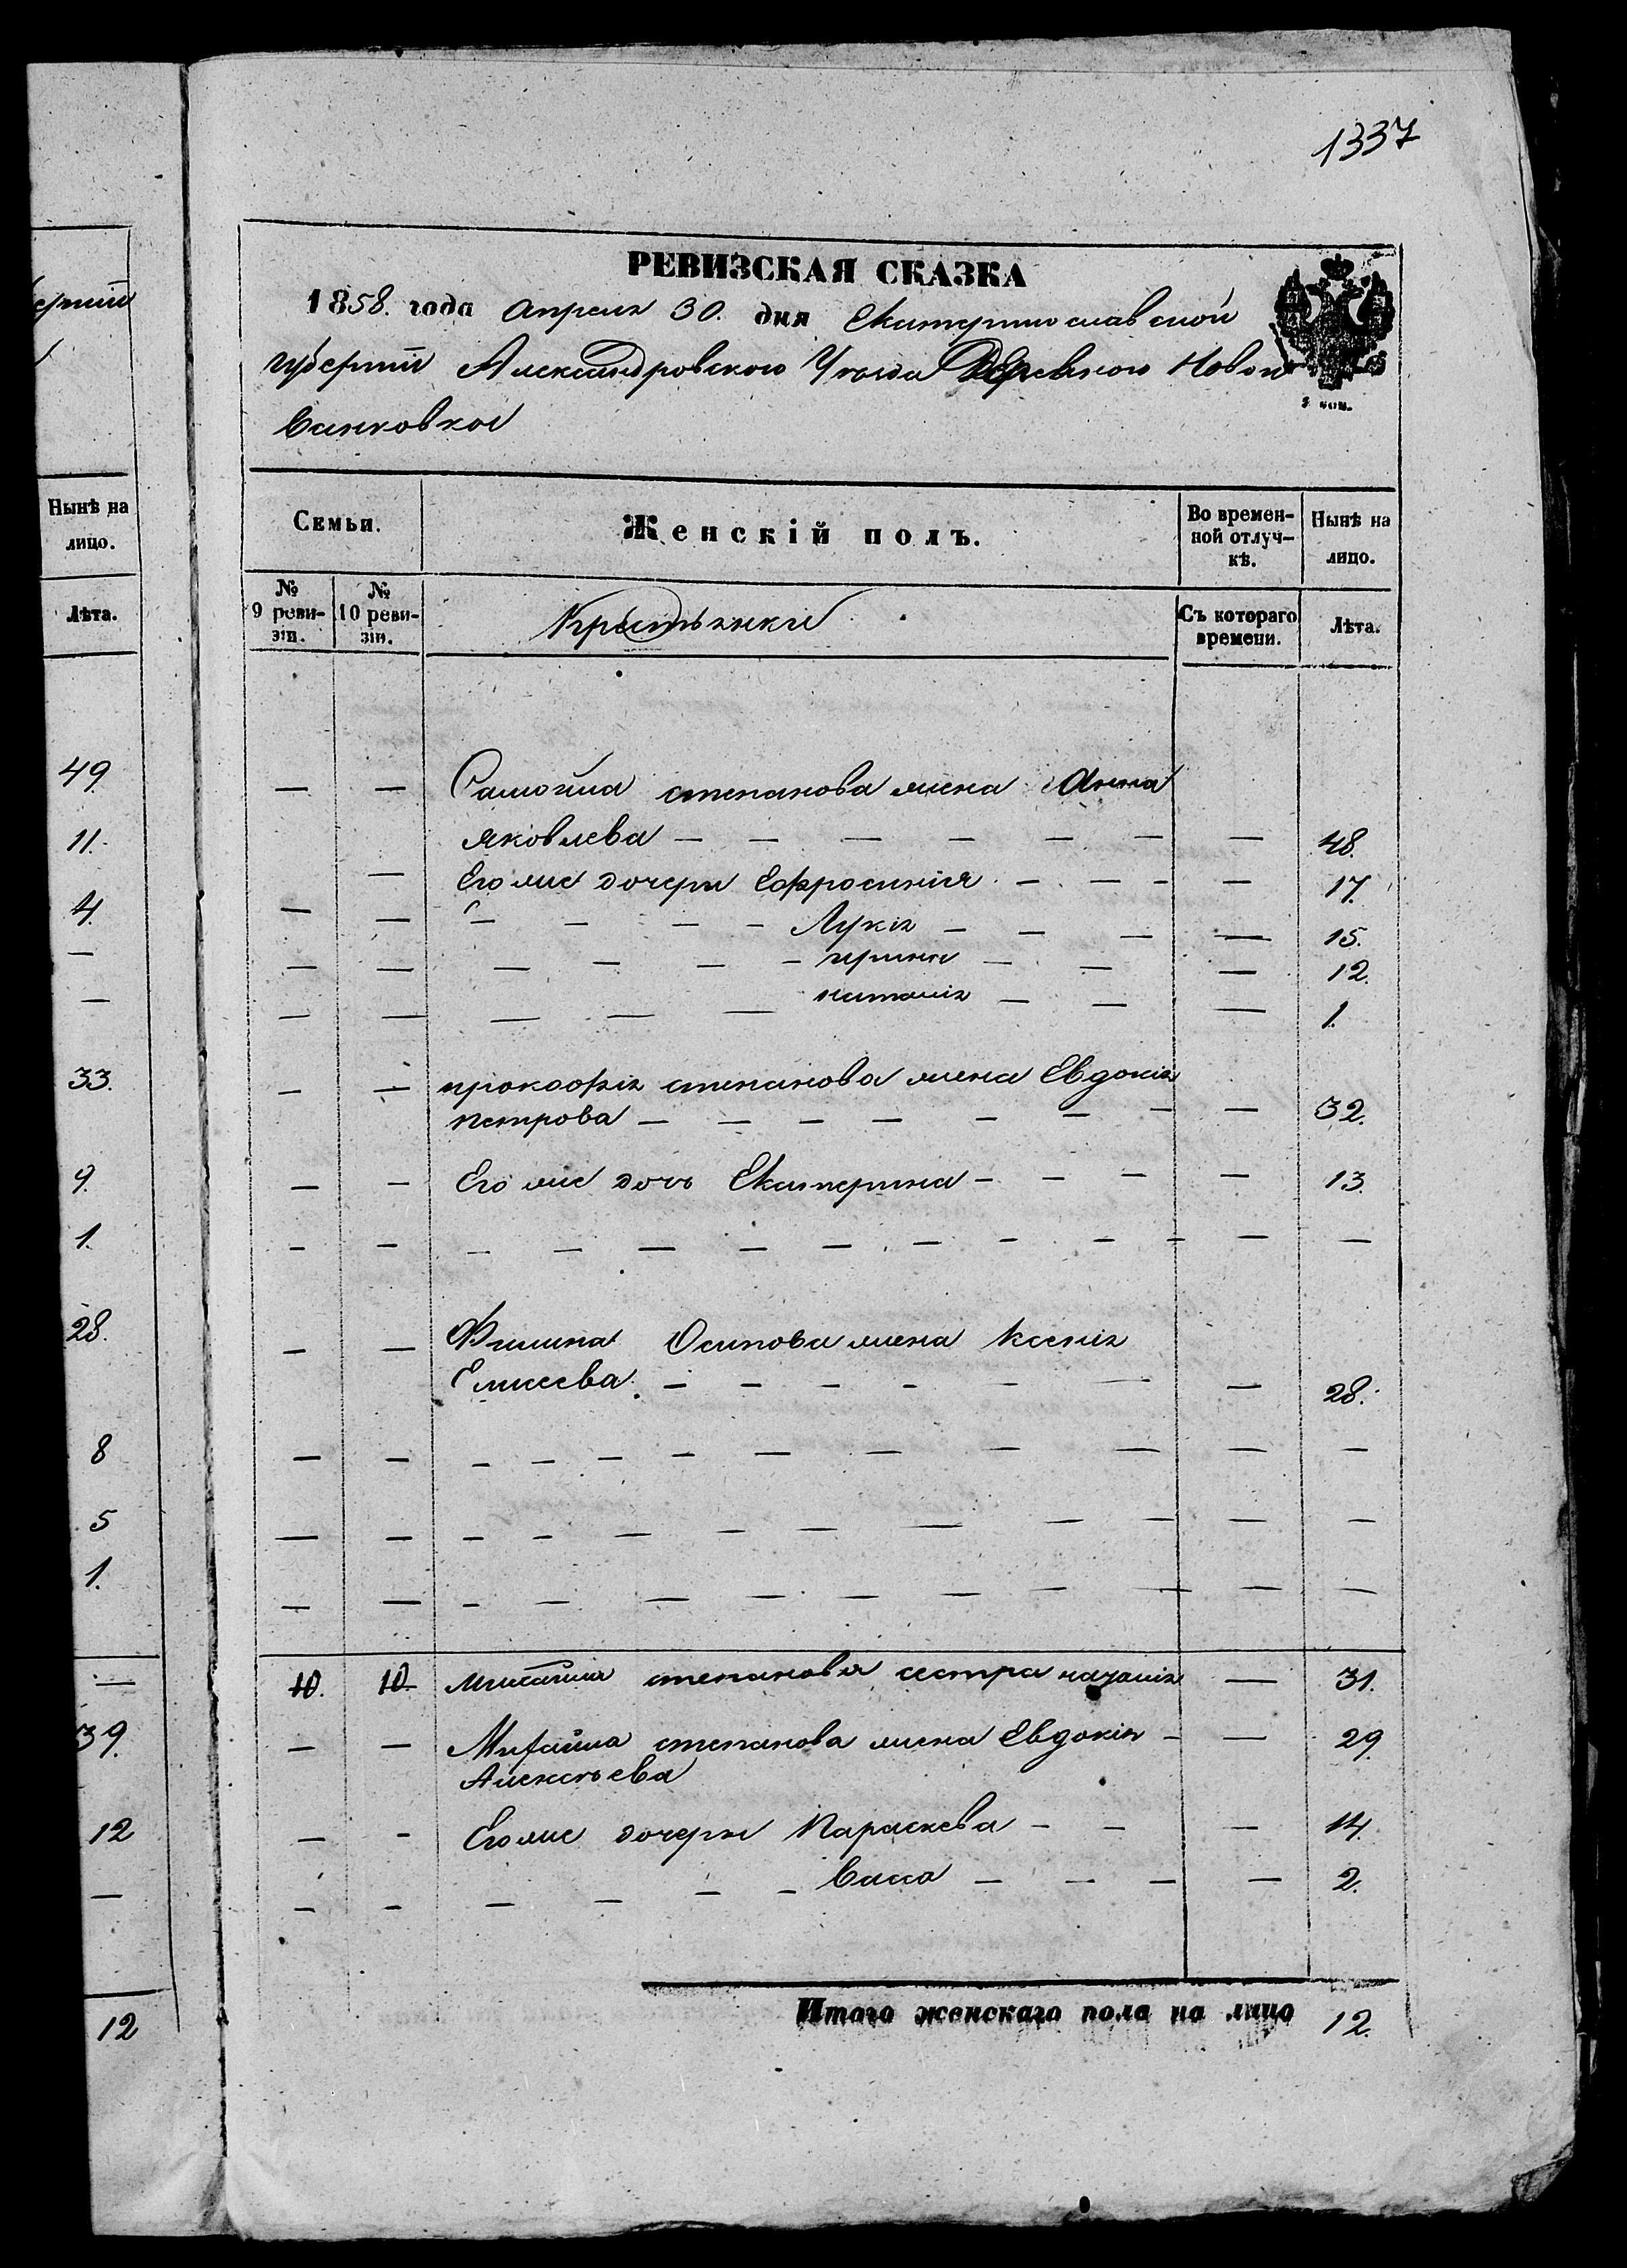 1337
РЕВИЗСКАЯ СКАЗКА
1858. года Апреля 30. дня Екатеринославской
губернии Александровского Уезда Деревного Ново
Ванковкои
ернии
Нынѣ на
лицо.
Лѣта.
49
11.
4.
—
—
33.
9.
1.
28.
8
5
1.
—
39.
12
—
12
Семьи.
Женскій полъ.
Во времен-
ной отлуч-
кѣ.
Нынѣ на
лицо.
№
9 реви-
зіи.
№
10 реви-
зіи.
Крестьянки
Съ котораго
времени.
Лѣта.
— — Самойла степанова жена Анна
Яковлева — — — — — — — 48.
— Его же дочери Ефросинія — — — — 17.
— — — — — — Лукія — — — — 15.
— — — — — — ирина — — — 12.
— — — — — наталія — — — 1.
— — прокофія степанова жена Евдокія
петрова — — — — — — — — 32.
— — Его же дочь Екатерина — — — — 13.
— — — — — — — — — — — — —
— — Филипа Осипова жена Ксенія
Елисеева — — — — — — — 28.
— — — — — — — — — — — —
— — — — — — — — — — — —
— — — — — — — — — — — —
10. 10. степанова сестра — 31.
— — Михайла степанова жена Евдокія — — 29
Алексѣева
— — Его же дочери Параскева — — — 14.
— — — — — — Васса — — — — 2.
Итого женскаго пола на лицо 12.